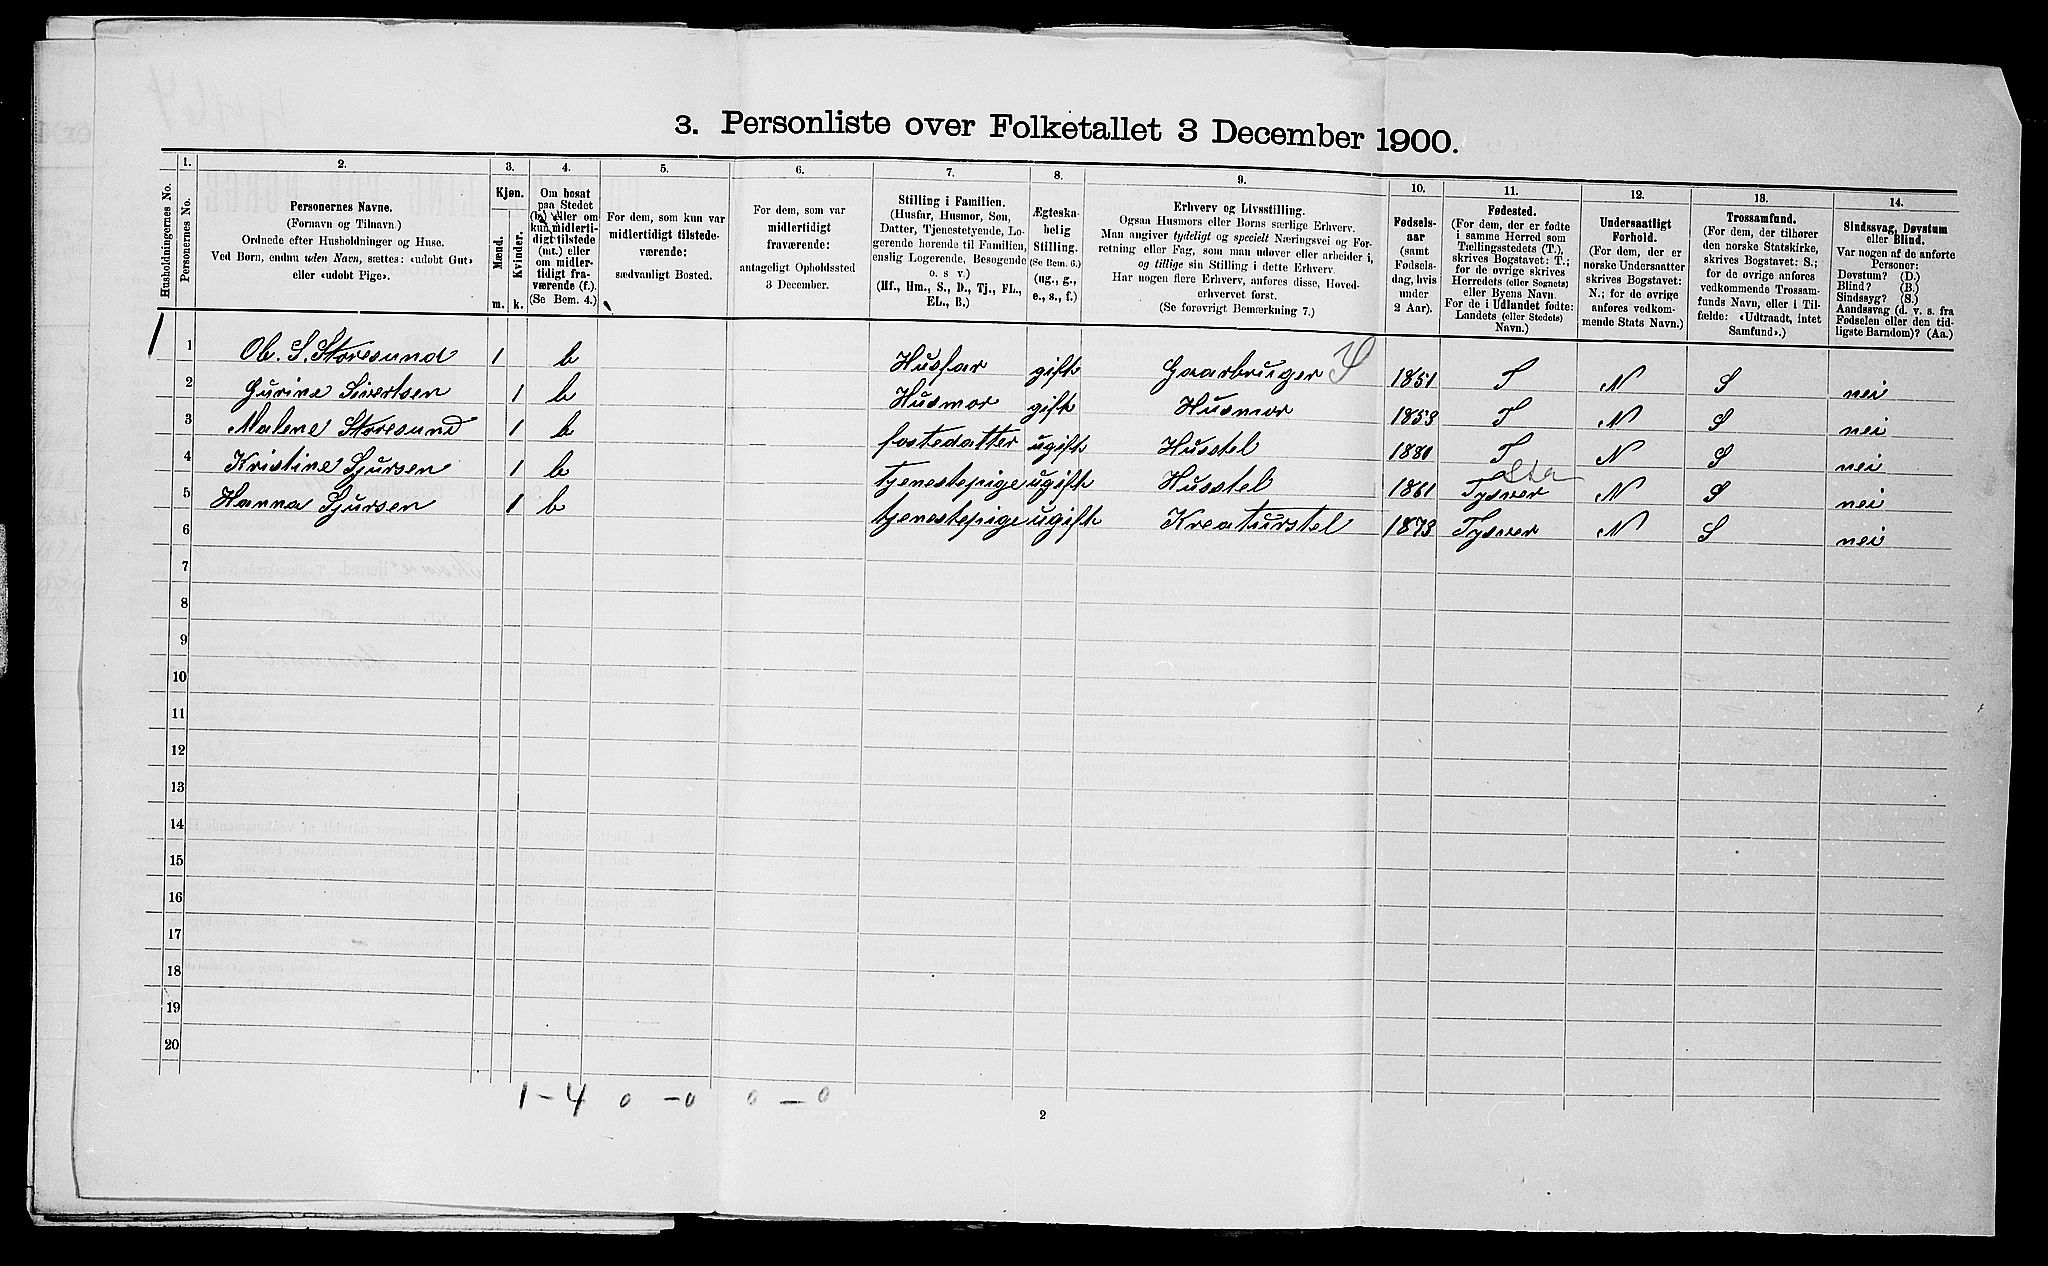 3. Personliste over Folketallet 3 December 1900.
Husholdningernes No.
1.
Personernes No.
2.
Personernes Navne.
(Fornavn og Tilnavn)
Ordnede efter Husholdninger og Huse.
Ved Børn, endnu uden Navn, sættes: «udøbt Gut»
eller «udøbt Pige».
3.
Kjøn.
Mænd.
Kvinder.
m. k.
4.
Om bosat
paa Stedet
(b) eller om
kun midlerti-
digt tilstede
(mt.) eller
om midler-
tidigt fra-
værende (f.).
(Se Bem. 4.)
5.
For dem, som kun var
midlertidigt tilstede-
værende:
sædvanligt Bosted.
6.
For dem, som var
midlertidigt
fraværende:
antageligt Opholdssted
3 December.
7.
Stilling i Familien.
(Husfar, Husmor, Søn,
Datter, Tjenestetyende, Lo-
gerende hørende til Familien,
enslig Logerende, Besøgende
o. s v.)
(Hf., Hm., S., D., Tj., FL.,
EL., B.)
8.
Ægteska-
belig
Stilling.
(Se Bem. 6.)
(ug., g.,
e., s., f.)
9.
Erhverv og Livsstilling.
Ogsaa Husmors eller Børns særlige Erhverv.
Man angiver tydeligt og specielt Næringsvei og For-
retning eller Fag, som man udøver eller arbeider i,
og tillige sin Stilling i dette Erhverv.
Har nogen flere Erhverv, anføres disse, Hoved-
erhvervet først.
(Se forøvrigt Bemærkning 7.)
10.
Fødsels-
aar
(samt
Fødsels-
dag, hvis
under
2 Aar).
11.
Fødested.
(For dem, der er fødte
i samme Herred som
Tællingsstedets (T.),
skrives Bogstavet: T.;
for de øvrige skrives
Herredets (eller Sognets)
eller Byens Navn.
For de i Udlandet fødte:
Landets (eller Stedets)
Navn.)
12.
Undersaatligt
Forhold.
(For dem, der er
norske Undersaatter
skrives Bogstavet:
N.; for de øvrige
anføres vedkom-
mende Stats Navn.)
13.
Trossamfund.
(For dem, der tilhører
den norske Statskirke,
skrives Bogstavet: S.;
for de øvrige anføres
vedkommende Trossam-
funds Navn, eller i Til-
fælde: «Udtraadt, intet
Samfund».)
14.
Sindssvag, Døvstum
eller Blind.
Var nogen af de anførte
Personer:
Døvstum? (D.)
Blind? (B.)
Sindssyg? (S.)
Aandssvag (d. v. s. fra
Fødselen eller den tid-
ligste Barndom)? (Aa.)
1 1 Ob. S. Storesund 1 b Husfar gift Gaarbruiger S 1851 T N S nei
2 Gurine Sivertsen 1 b Husmor gift Husmor 1853 T N S nei
3 Malene Storesund 1 b fostedatter ugift Husstel 1881 T N S nei
4 Kristine Sjursen 1 b tjenestepige ugift Husstel 1861 Tysver N S nei
5 Hanna Sjursen 1 b tjenestepige ugift Kreaturstel 1873 Tysver N S nei
6
7
8
9
10
11
12
13
14
15
16
17
18
19
20
1 - 4 0 - 0 0 - 0
2